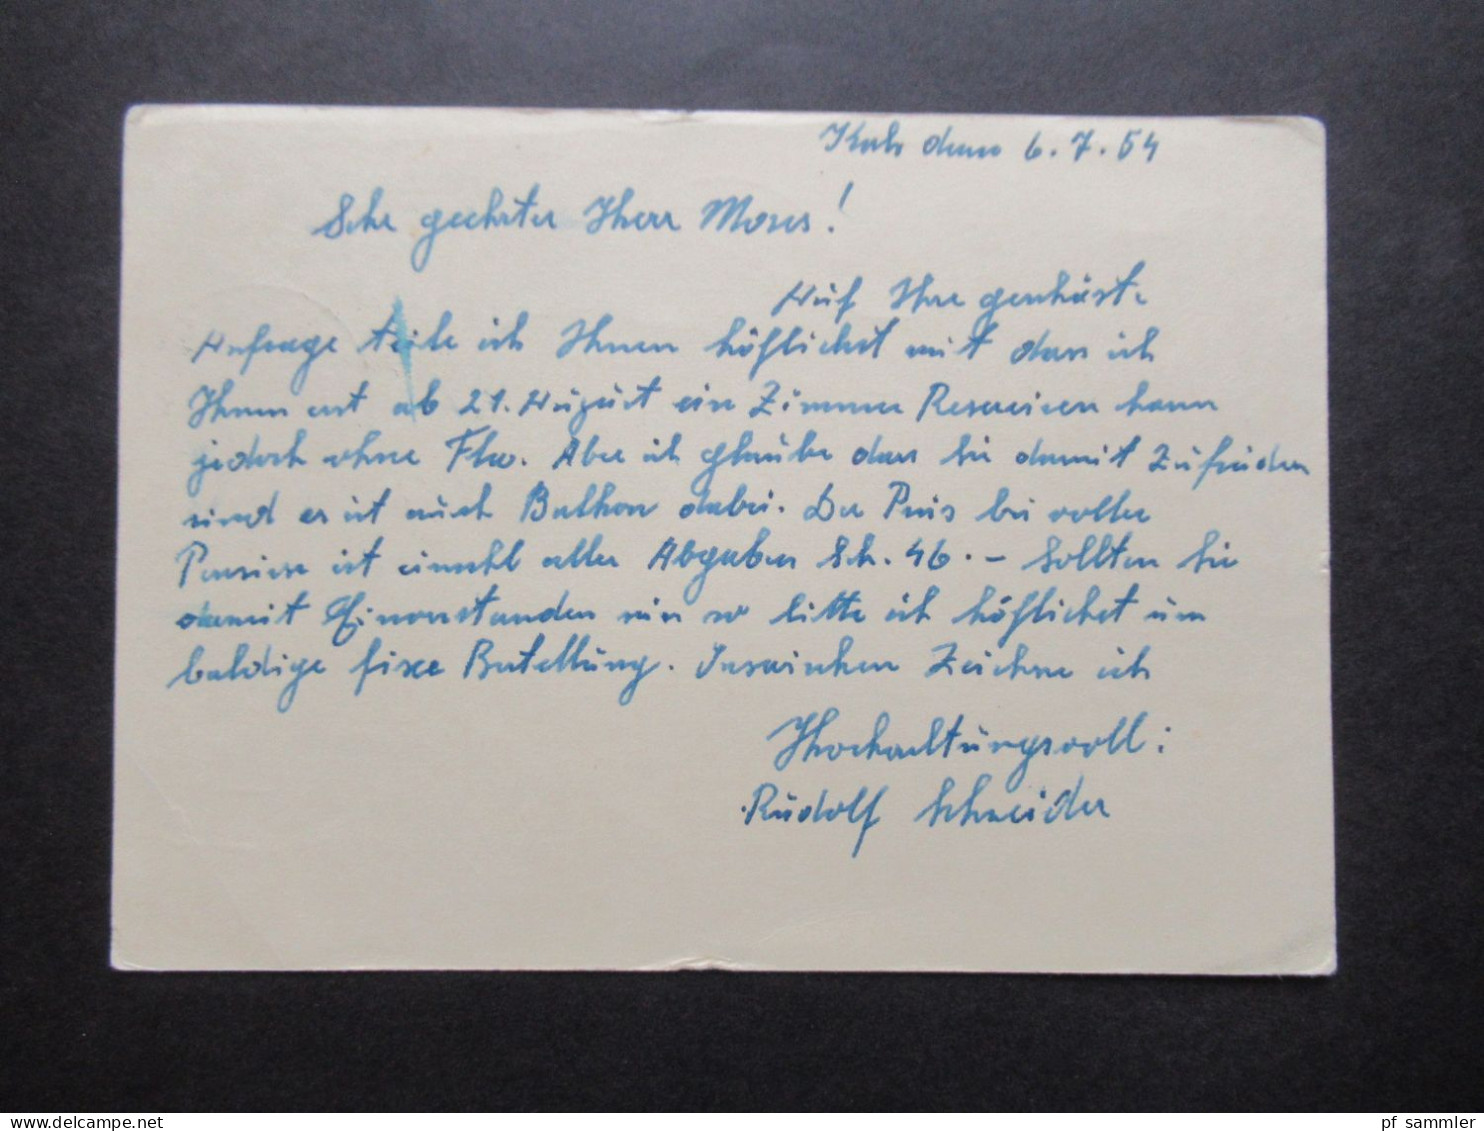 den 6.7.54
Sehr geehrter Herr Moses!
Auf Ihre geschäst.
Anfrage teile ich Ihnen höflichst mit dass ich
Ihnen erst ab 21. August ein Zimmer Reservieren kann
jedoch ohne Flw. Aber ich glaube dass sie damit Zufrieden
sind es ist auch Balkon dabei. Der Preis bei voller
Pension ist einschl aller Abgaben Sch. 46.– Sollten Sie
damit Einverstanden sein so bitte ich höflichst um
baldige fixe Bestellung. Inzwischen Zeichne ich
Hochachtungsvoll:
Rudolf Schneider
pf_sammler
www.delcampe.net